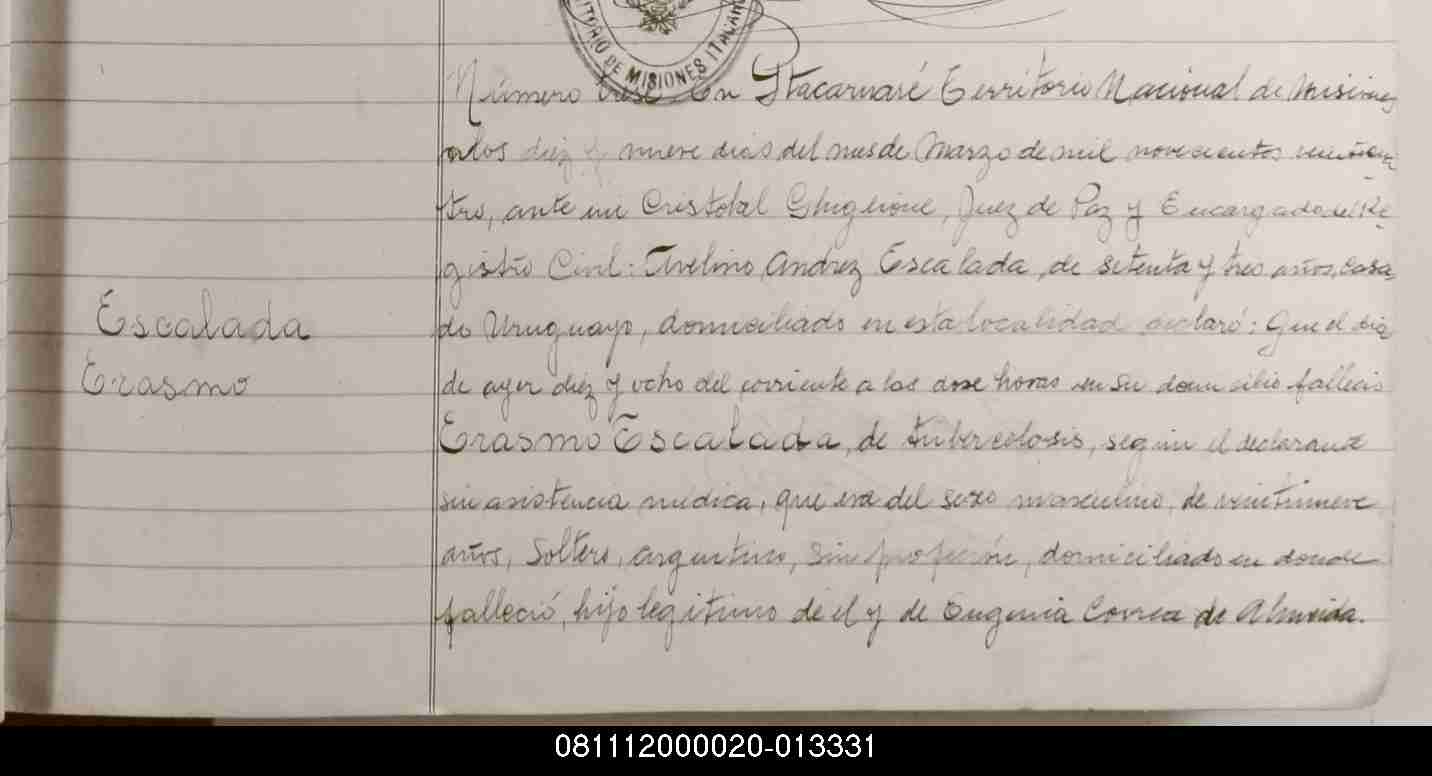 TORIO DE MISIONES ITACARUARÉ
Número trese En Itacaruaré Territorio Nacional de Misiones
a los diez y nueve dias del mes de Marzo de mil novecientos veinticua-
tro, ante mi Cristobal Ghiglione, Juez de Paz y Encargado del Re-
gistro Civil: Avelino Andrez Escalada, de setenta y tres años, casa-
do Uruguayo, domiciliado en esta localidad declaró: Que el dia
de ayer diez y ocho del corriente a las dose horas en su domicilio fallecio
Erasmo Escalada, de tubercolosis, segun el declarante
sin asistencia médica, que era del sexo masculino, de veintinueve
años, Soltero, argentino, sin profesión, domiciliado en donde
falleció, hijo legitimo de el y de Eugenia Correa de Almeida.
Escalada
Erasmo
081112000020-013331